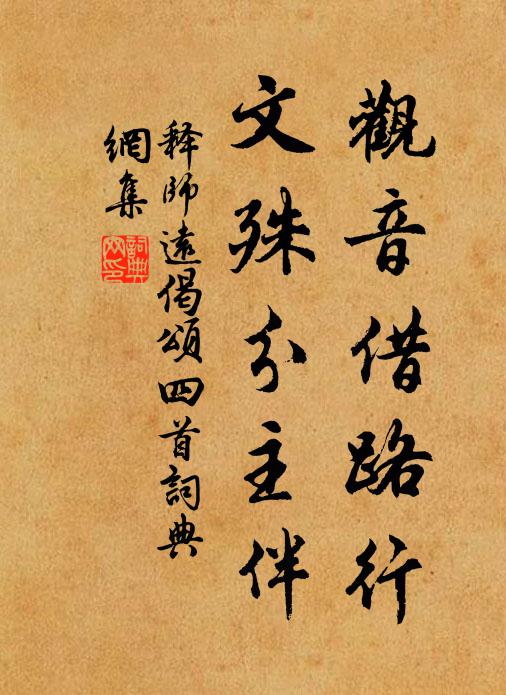 觀音借路行
文殊分主伴
释師遠偈頌四首詞典
網集
詞典網印